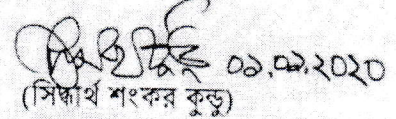 ০১.০৯.২০২০
(সিদ্ধার্থ শংকর কুন্ডু)